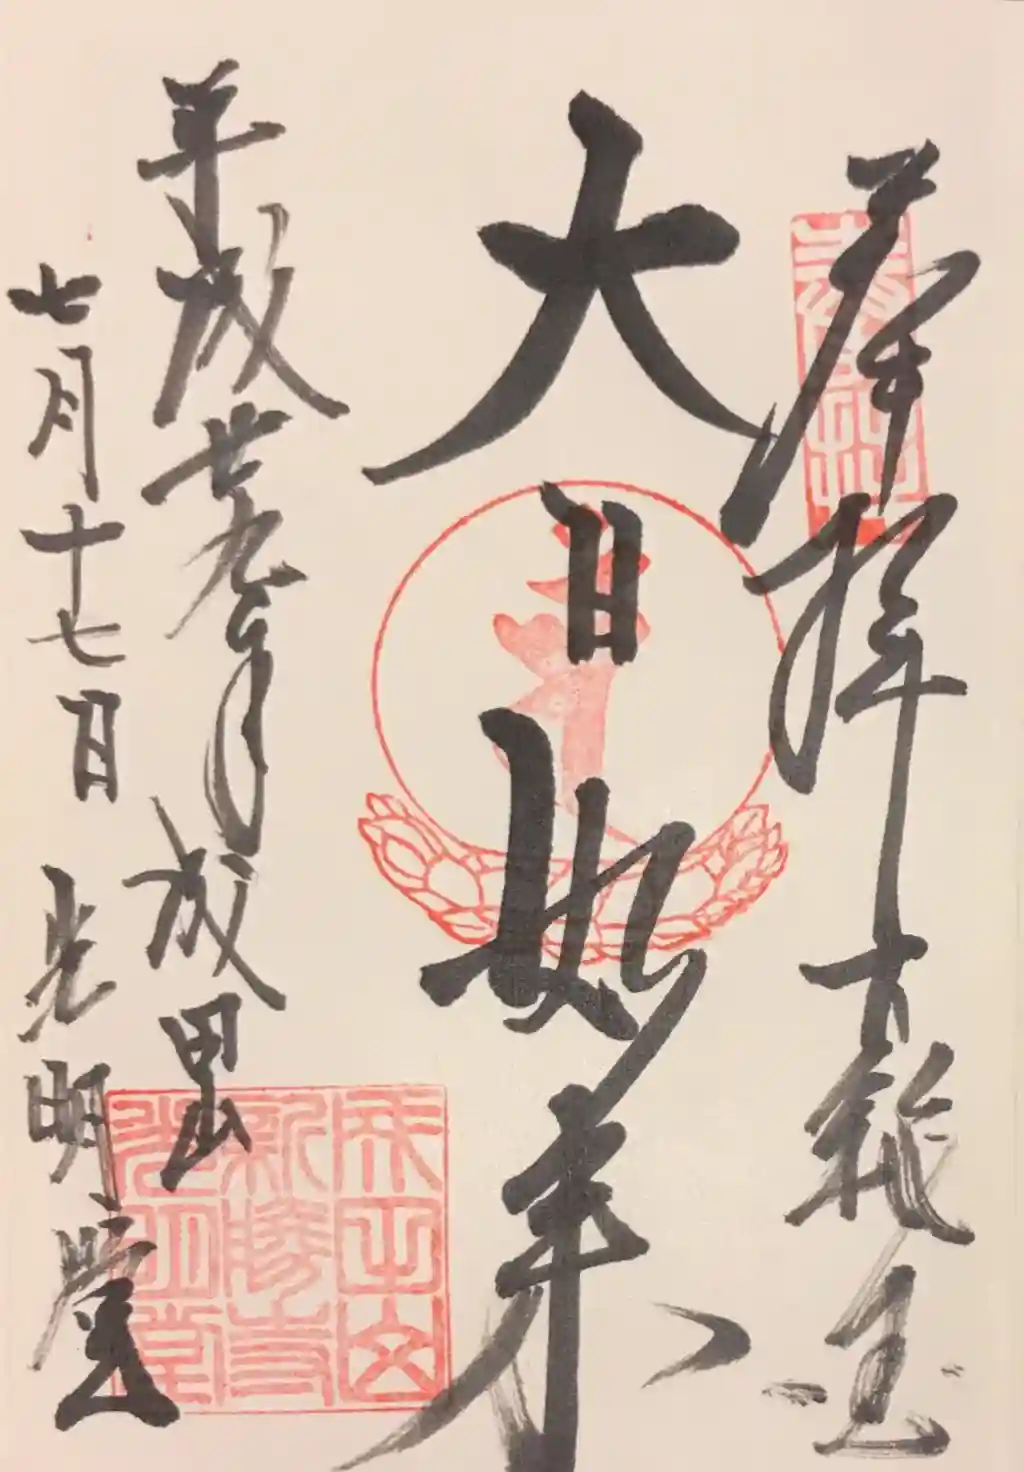 奉拝
大日如来
平成廿九年 成田山
七月十七日 光明堂
成田山
新勝寺
光明堂